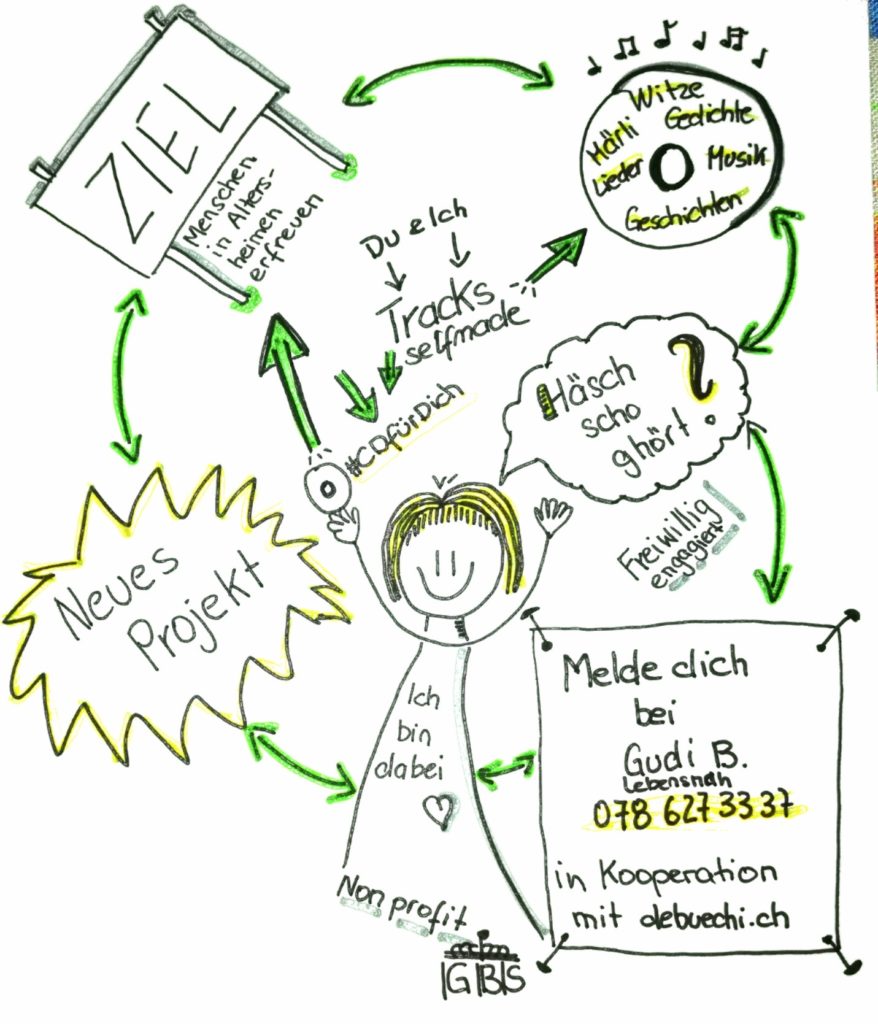 ZIEL
Menschen
in Alters-
heimen
erfreuen
Witze
Gedichte
Härli
Lieder
Musik
Geschichten
Du & Ich
Tracks
selfmade
#CDfürDich
Häsch
scho
ghört?
Freiwillig
engagiert
Neues
Projekt
Ich
bin
dabei
Non profit
GBS
Melde dich
bei
Gudi B.
Lebensnah
078 627 33 37
in Kooperation
mit olebuechi.ch